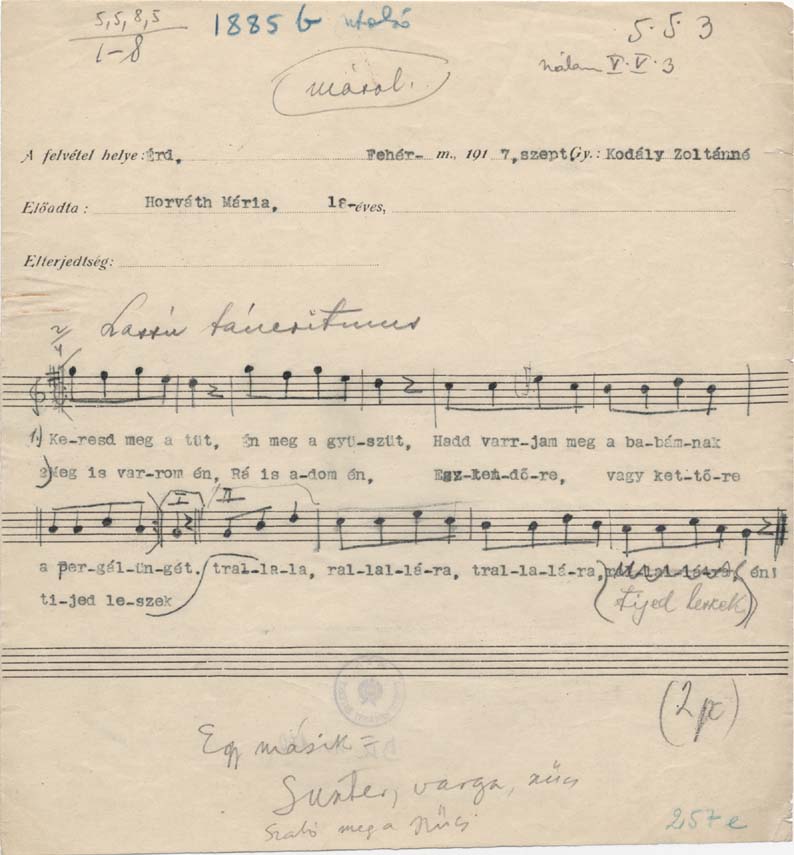 5,5,8,5
1-8
1885 b utolsó
5.5 3
nálam V.V.3
másol.
A felvétel helye: Érd, Fehér- m., 1917,szept Gy.: Kodály Zoltánné
Előadta: Horváth Mária, 18-éves,
Elterjedtség:
Lassú táncritmus
2/4
1.) Ke-resd meg a tűt, Én meg a gyű-szűt, Hadd varr-jam meg a ba-bám-nak
2) Meg is var-rom én, Rá is a-dom én, Esz-ten-dő-re, vagy ket-tő-re
I II
a per-gál-ün-gét. tral-la-la, ral-lal-lá-ra, tral-la-lá-ra, én!
ti-jed le-szek
(tijed leszek)
(2 pl)
Egy másik =
Suszter, varga, szűcs
Szabó meg a szűcs
257 e